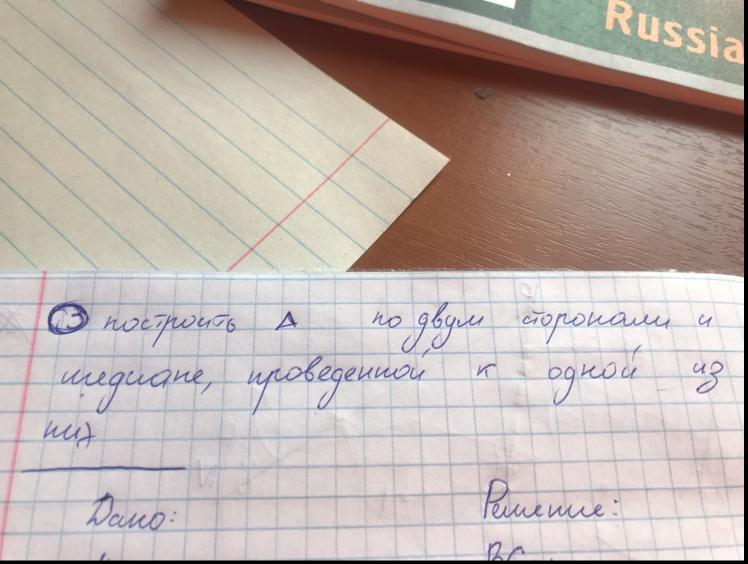 Russia
13 построить Δ по двум сторонами и
медиане, проведенной к одной из
них
Дано: Решение:
ВС